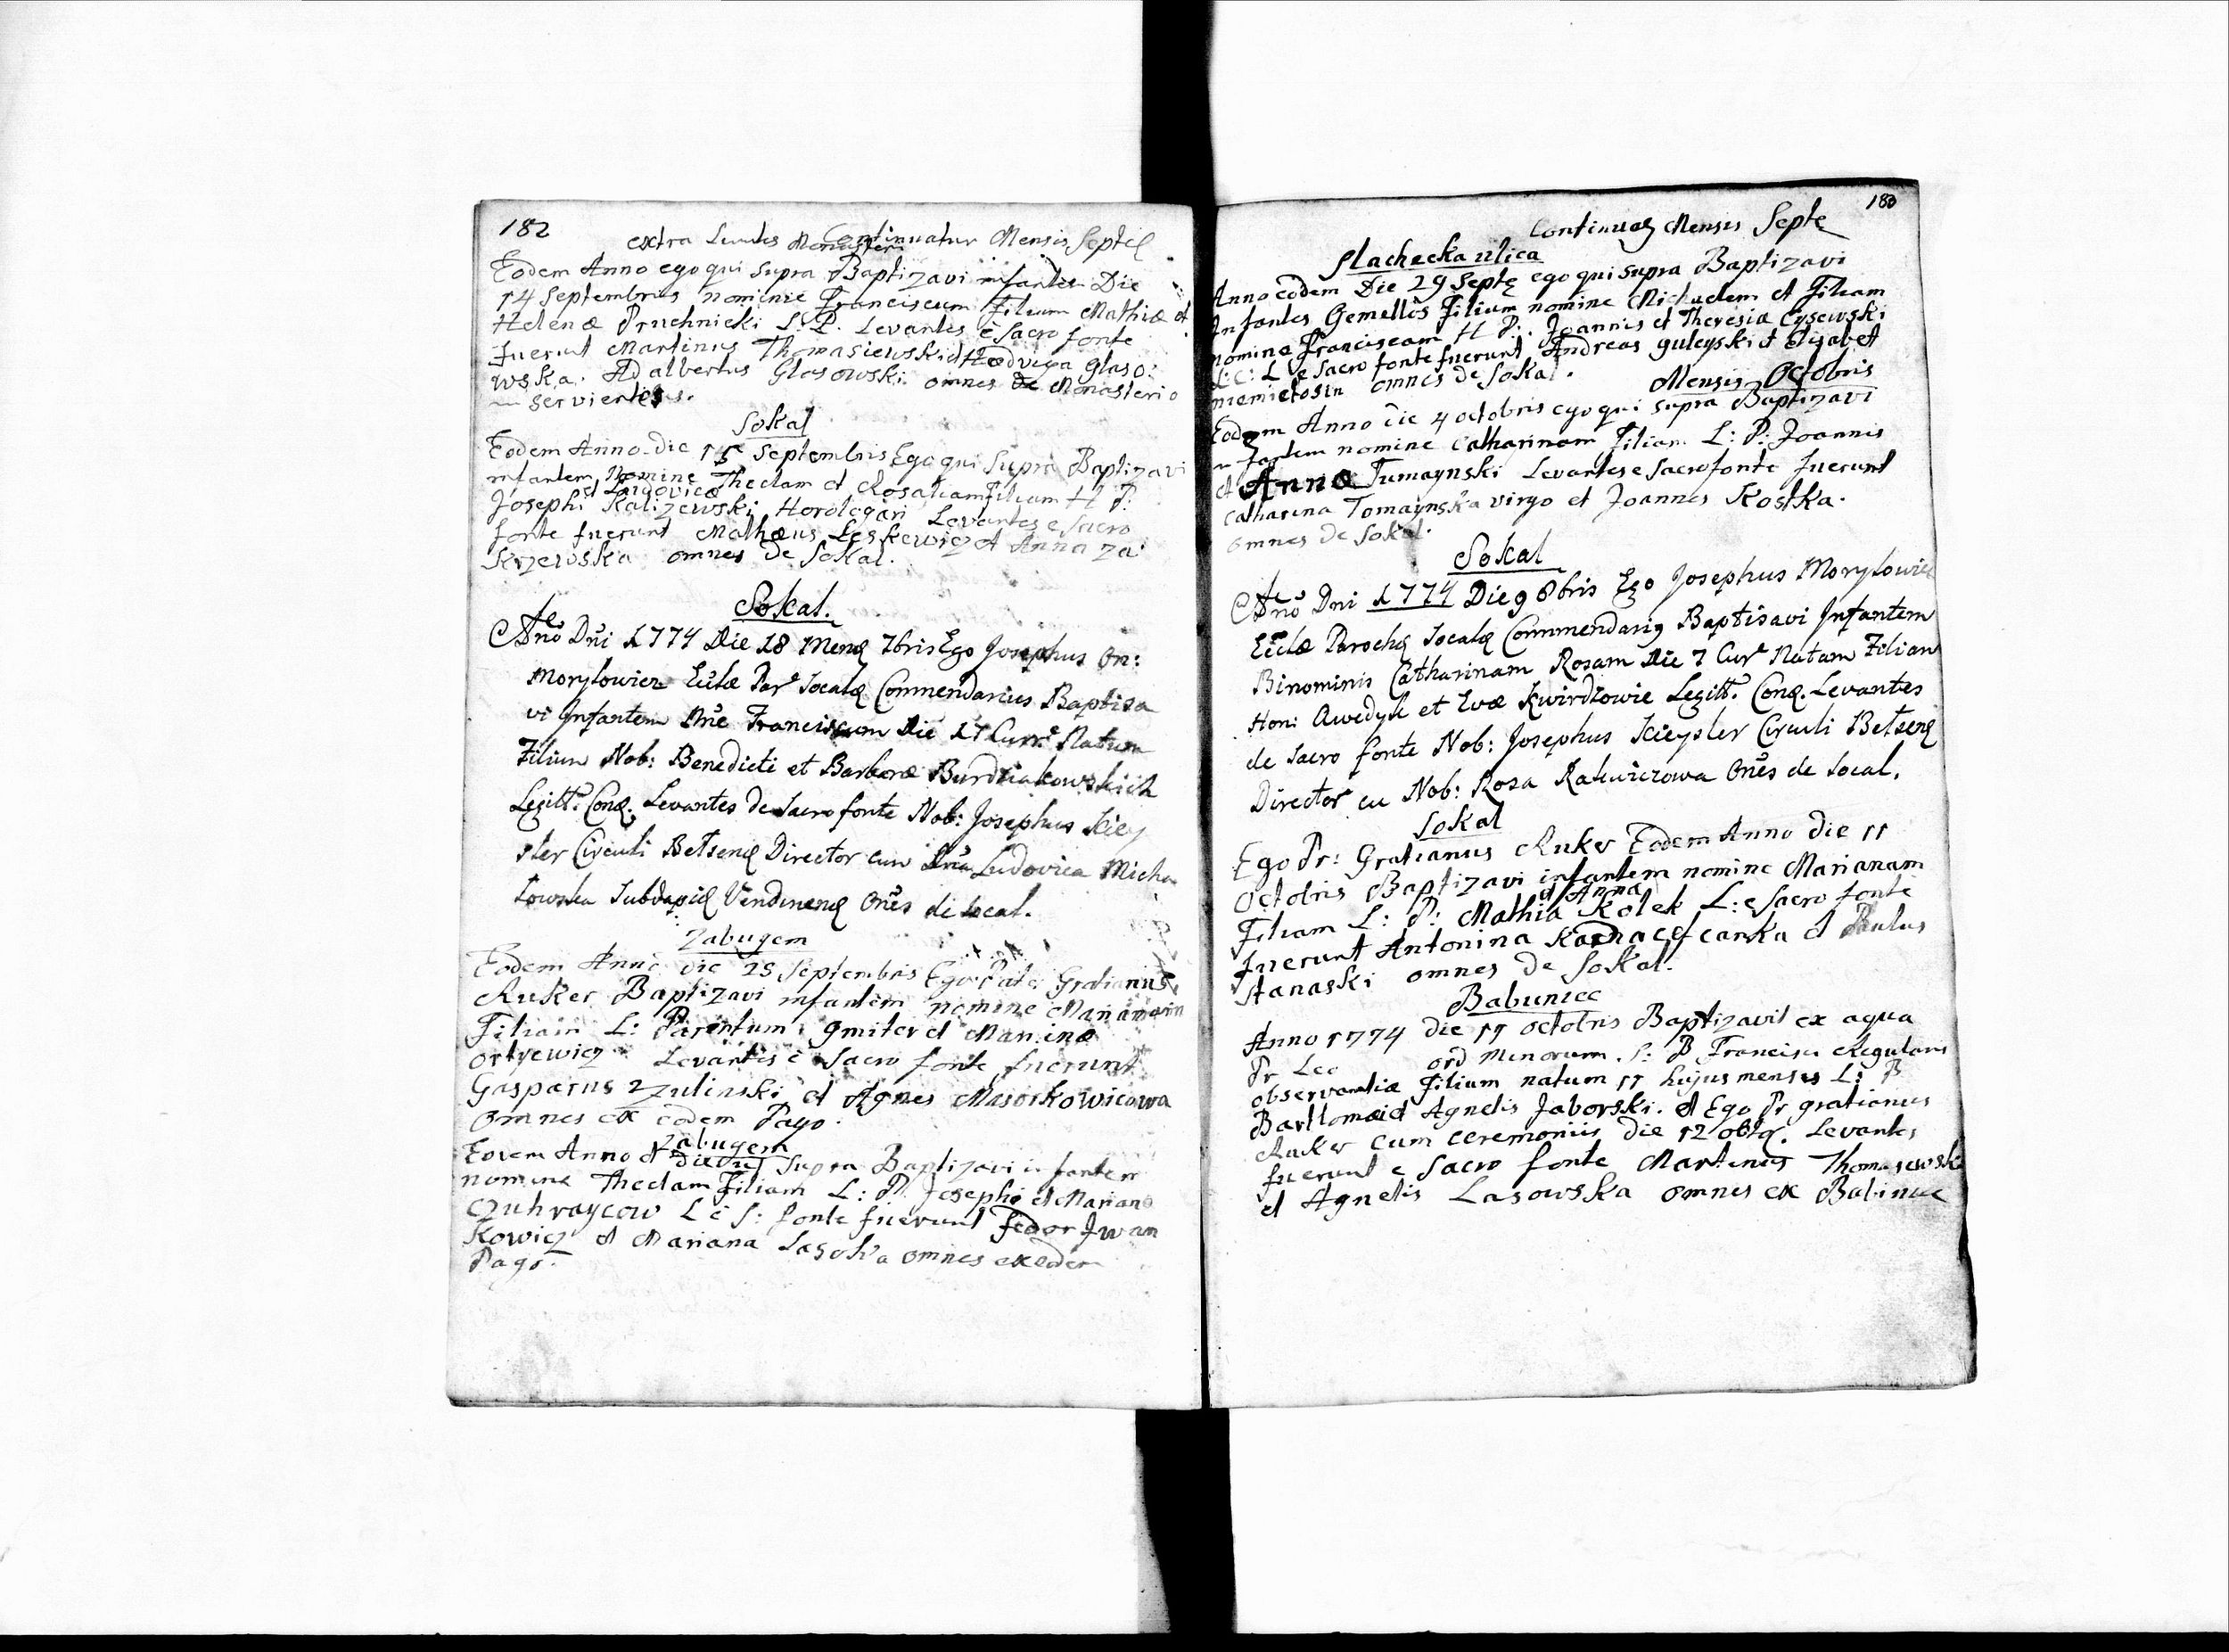 182
Continuatur Mensis Septe
extra Monasterii
Eodem Anno ego qui supra Baptizavi infantem Die
14 Septembris nomine Franciscum Filium Mathiæ et
Helenæ Pruchnicki L. P. Levantes e Sacro fonte
fuerunt Martinus Thomasiewski et Hedviga Glaso:
wska. Adalbertus Glasowski omnes de Monasterio
servientes.
Sokal
Eodem Anno die 15 Septembris Ego qui Supra Baptizavi
infantem Nomine Theclam et Rosaliam Filiam H P.
et Ludovicæ
Josephi Kalizewski Horologari Levantes e Sacro
fonte fuerunt Mathæus Leskewicz et Anna Za
krzewska omnes de Sokal.
Sokal.
Ano Dni 1774 Die 18 Mens 7bris Ego Josephus On:
Morylowicz Eclæ Par Socal Commendarius Baptisa
vi Infantem Nne Franciscum Die 17 Curr Natum
Filium Nob: Benedicti et Barbaræ Burdziakowskich
Legitt. Con. Levantes de Sacro fonte Nob: Josephus Kiey
sler Circuli Belsens Director cum Dna Ludovica Micha
lowska Subdapid Vendinens Ones de Socal.
Zabugem
Eodem Anno die 25 Septembris Ego Pater Gratianus
Ruker Baptizavi infantem nomine Mariannam
Filiam L: Parentum Gmiter et Marinæ
Ortycwicz Levantes e Sacro fonte fuerunt
Gasparus Zulinski et Agnes Masorkowicowa
omnes ex eodem Pago.
Zabugem
Eodem Anno et die qui supra Baptizavi infantem
nomine Theclam Filiam L: P. Josephi et Mariana
Czuhraycow L e S: fonte fuerunt fedor Jwan
kowicz et Mariana Sasoka omnes ex eodem
Pago.
183
Continua Mensis Septe
Slachecka ulica
Anno eodem Die 29 Septe ego qui supra Baptizavi
Infantes Gemellos Filium nomine Michaelem et Filiam
nomine Franciscam H P. Joannis et Theresiæ Cysewski
L: C: L e Sacro fonte fuerunt Andreas guleyski et Elisabet
niemietosin omnes de Sokal.
Mensis Octobris
Eodem Anno die 4 octobris ego qui supra Baptizavi
infantem nomine Catharinam Filiam L: P: Joannis
et Annæ Tumaynski Levantes e Sacro fonte fuerunt
Catharina Tomaynska virgo et Joannes Kostka.
omnes de Sokal.
Sokal
Ano Dni 1774 Die 9 8bris Ego Josephus Morylowicz
Eclæ Paroch Socal Commendari9 Baptisavi Infantem
Binominis Catharinam Rosam Die 7 Cur Natam Filiam
Hon: Awedyk et Evæ Kwirdzowie Legitt. Con. Levantes
de Sacro fonte Nob: Josephus Kieysler Circuli Belsens
Director cu Nob: Rosa Rakwiczowa Ones de Socal.
Sokal
Ego Pr: Gratianus Ruker Eodem Anno die 11
Octobris Baptizavi infantem nomine Mariannam
et Anna
Filiam L: P: Mathia Kolek L: e Sacro fonte
fuerunt Antonina et Paulus
stanaski omnes de Sokal.
Babunice
Anno 1774 die 11 octobris Baptizavit ex aqua
Pr Leo ord Minorum. S: P Francisci Regularis
observantiæ Filium natum 11 hujus mensis L: P
Bartlomæi et Agnetis Jaborski. et Ego Pr gratianus
Ruker cum ceremoniis die 12 obtg. Levantes
fuerunt e Sacro fonte Martinus Thomasewski
et Agnetis Lasowska omnes ex Babinue